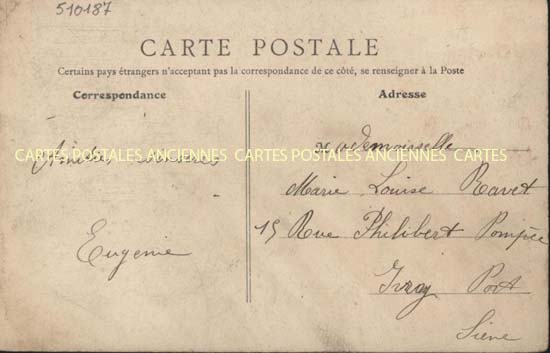 510187
CARTE POSTALE
Certains pays étrangers n'acceptant pas la correspondance de ce côté, se renseigner à la Poste
Correspondance
Adresse
CARTES POSTALES ANCIENNES CARTES POSTALES ANCIENNES CARTES
Eugenie
Mademoiselle
Marie Louise Ravet
15 Rue Philibert Pompée
Ivry Port
Seine